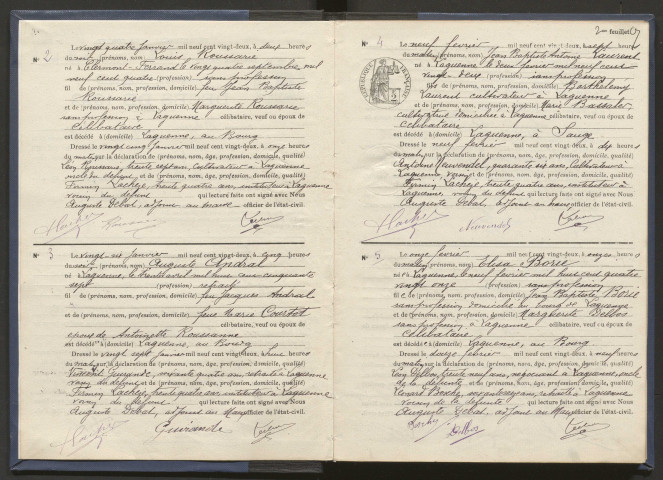 2me feuillet
N° 2
Le vingt quatre janvier mil neuf cent vingt-deux, à deux heures
du soir (prénoms, nom) Louis Roussarie
né à Clermont-Ferrand le vingt quatre septembre mil
neuf cent quatre (profession) sans profession
fil de (prénoms, nom, profession, domicile) feu Jean Baptiste
Roussarie
et de (prénoms, nom, profession, domicile) Marguerite Roussarie
sans profession à Laguenne célibataire, veuf ou époux de
Célibataire
est décédé Laguenne, au Bourg
Dressé le vingt cinq janvier mil neuf cent vingt-deux, à onze heures
du matin sur la déclaration de (prénoms, nom, âge, profession, domicile, qualité)
Léon trente sept ans, cultivateur à Laguenne
oncle du défunt et de (prénoms, nom, âge, profession, domicile, qualité)
Firmin Lacheze, trente quatre ans, instituteur à Laguenne
voisin du défunt qui lecture faite ont signé avec Nous
Auguste Debal, adjoint au maire officier de l'état-civil.
N° 3
Le vingt-six janvier mil neuf cent vingt-deux, à cinq heures
du soir (prénoms, nom) Auguste Andral
né à Laguenne, le trente avril mil huit cent cinquante
sept (profession) retraité
fil de (prénoms, nom, profession, domicile) feu Jacques Andral
et de (prénoms, nom, profession, domicile) feue Marie
célibataire, veuf ou époux de
époux de Antoinette Roussanne
est décédé à Laguenne, au Bourg
Dressé le vingt sept janvier mil neuf cent vingt-deux, à heures
du matin sur la déclaration de (prénoms, nom, âge, profession, domicile, qualité)
soixante quatre ans, retraité à Laguenne
voisin du défunt et de (prénoms, nom, âge, profession, domicile, qualité)
Firmin Lacheze, trente quatre ans, instituteur à Laguenne
voisin du défunt qui lecture faite ont signé avec Nous
Auguste Debal, adjoint au Maire officier de l'état-civil.
N° 4
Le neuf février mil neuf cent vingt-deux, à sept heures
du matin (prénoms, nom) Jean Baptiste Antoine Laurent
né à Laguenne le deux février mil neuf cent
vingt-deux (profession) sans profession
fil de (prénoms, nom, profession, domicile) Barthélemy
Laurent cultivateur à Laguenne
et de (prénoms, nom, profession, domicile) Marie Bassaler
cultivatrice domiciliée à Laguenne célibataire, veuf ou époux de
Célibataire
est décédé Laguenne, à
Dressé le neuf février mil neuf cent vingt-deux, à dix heures
du matin sur la déclaration de (prénoms, nom, âge, profession, domicile, qualité)
quarante six ans, cultivateur à
Laguenne, voisin et de (prénoms, nom, âge, profession, domicile, qualité)
Firmin Lacheze, trente quatre ans, instituteur à
Laguenne, voisin du défunt qui lecture faite ont signé avec Nous
Auguste Debal, adjoint au maire officier de l'état-civil.
N° 5
Le onze février mil neuf cent vingt-deux, à onze heures
du matin (prénoms, nom) Elisa Borie
née à Laguenne, le neuf février mil huit cent quatre
vingt onze (profession) sans profession
fille de (prénoms, nom, profession, domicile) Jean Baptiste Borie
sans profession domicilié au bourg de Laguenne
et de (prénoms, nom, profession, domicile) Marguerite Delbos
sans profession à Laguenne célibataire, veuf ou époux de
Célibataire
est décédée Laguenne, au Bourg
Dressé le douze février mil neuf cent vingt-deux, à neuf heures
du matin sur la déclaration de (prénoms, nom, âge, profession, domicile, qualité)
Léon Delbos, trente neuf ans, négociant à Laguenne, oncle
de la défunte et de (prénoms, nom, âge, profession, domicile, qualité)
retraité à Laguenne
voisin de la défunte qui lecture faite ont signé avec Nous
Auguste Debal, adjoint au Maire officier de l'état-civil.
Delbos